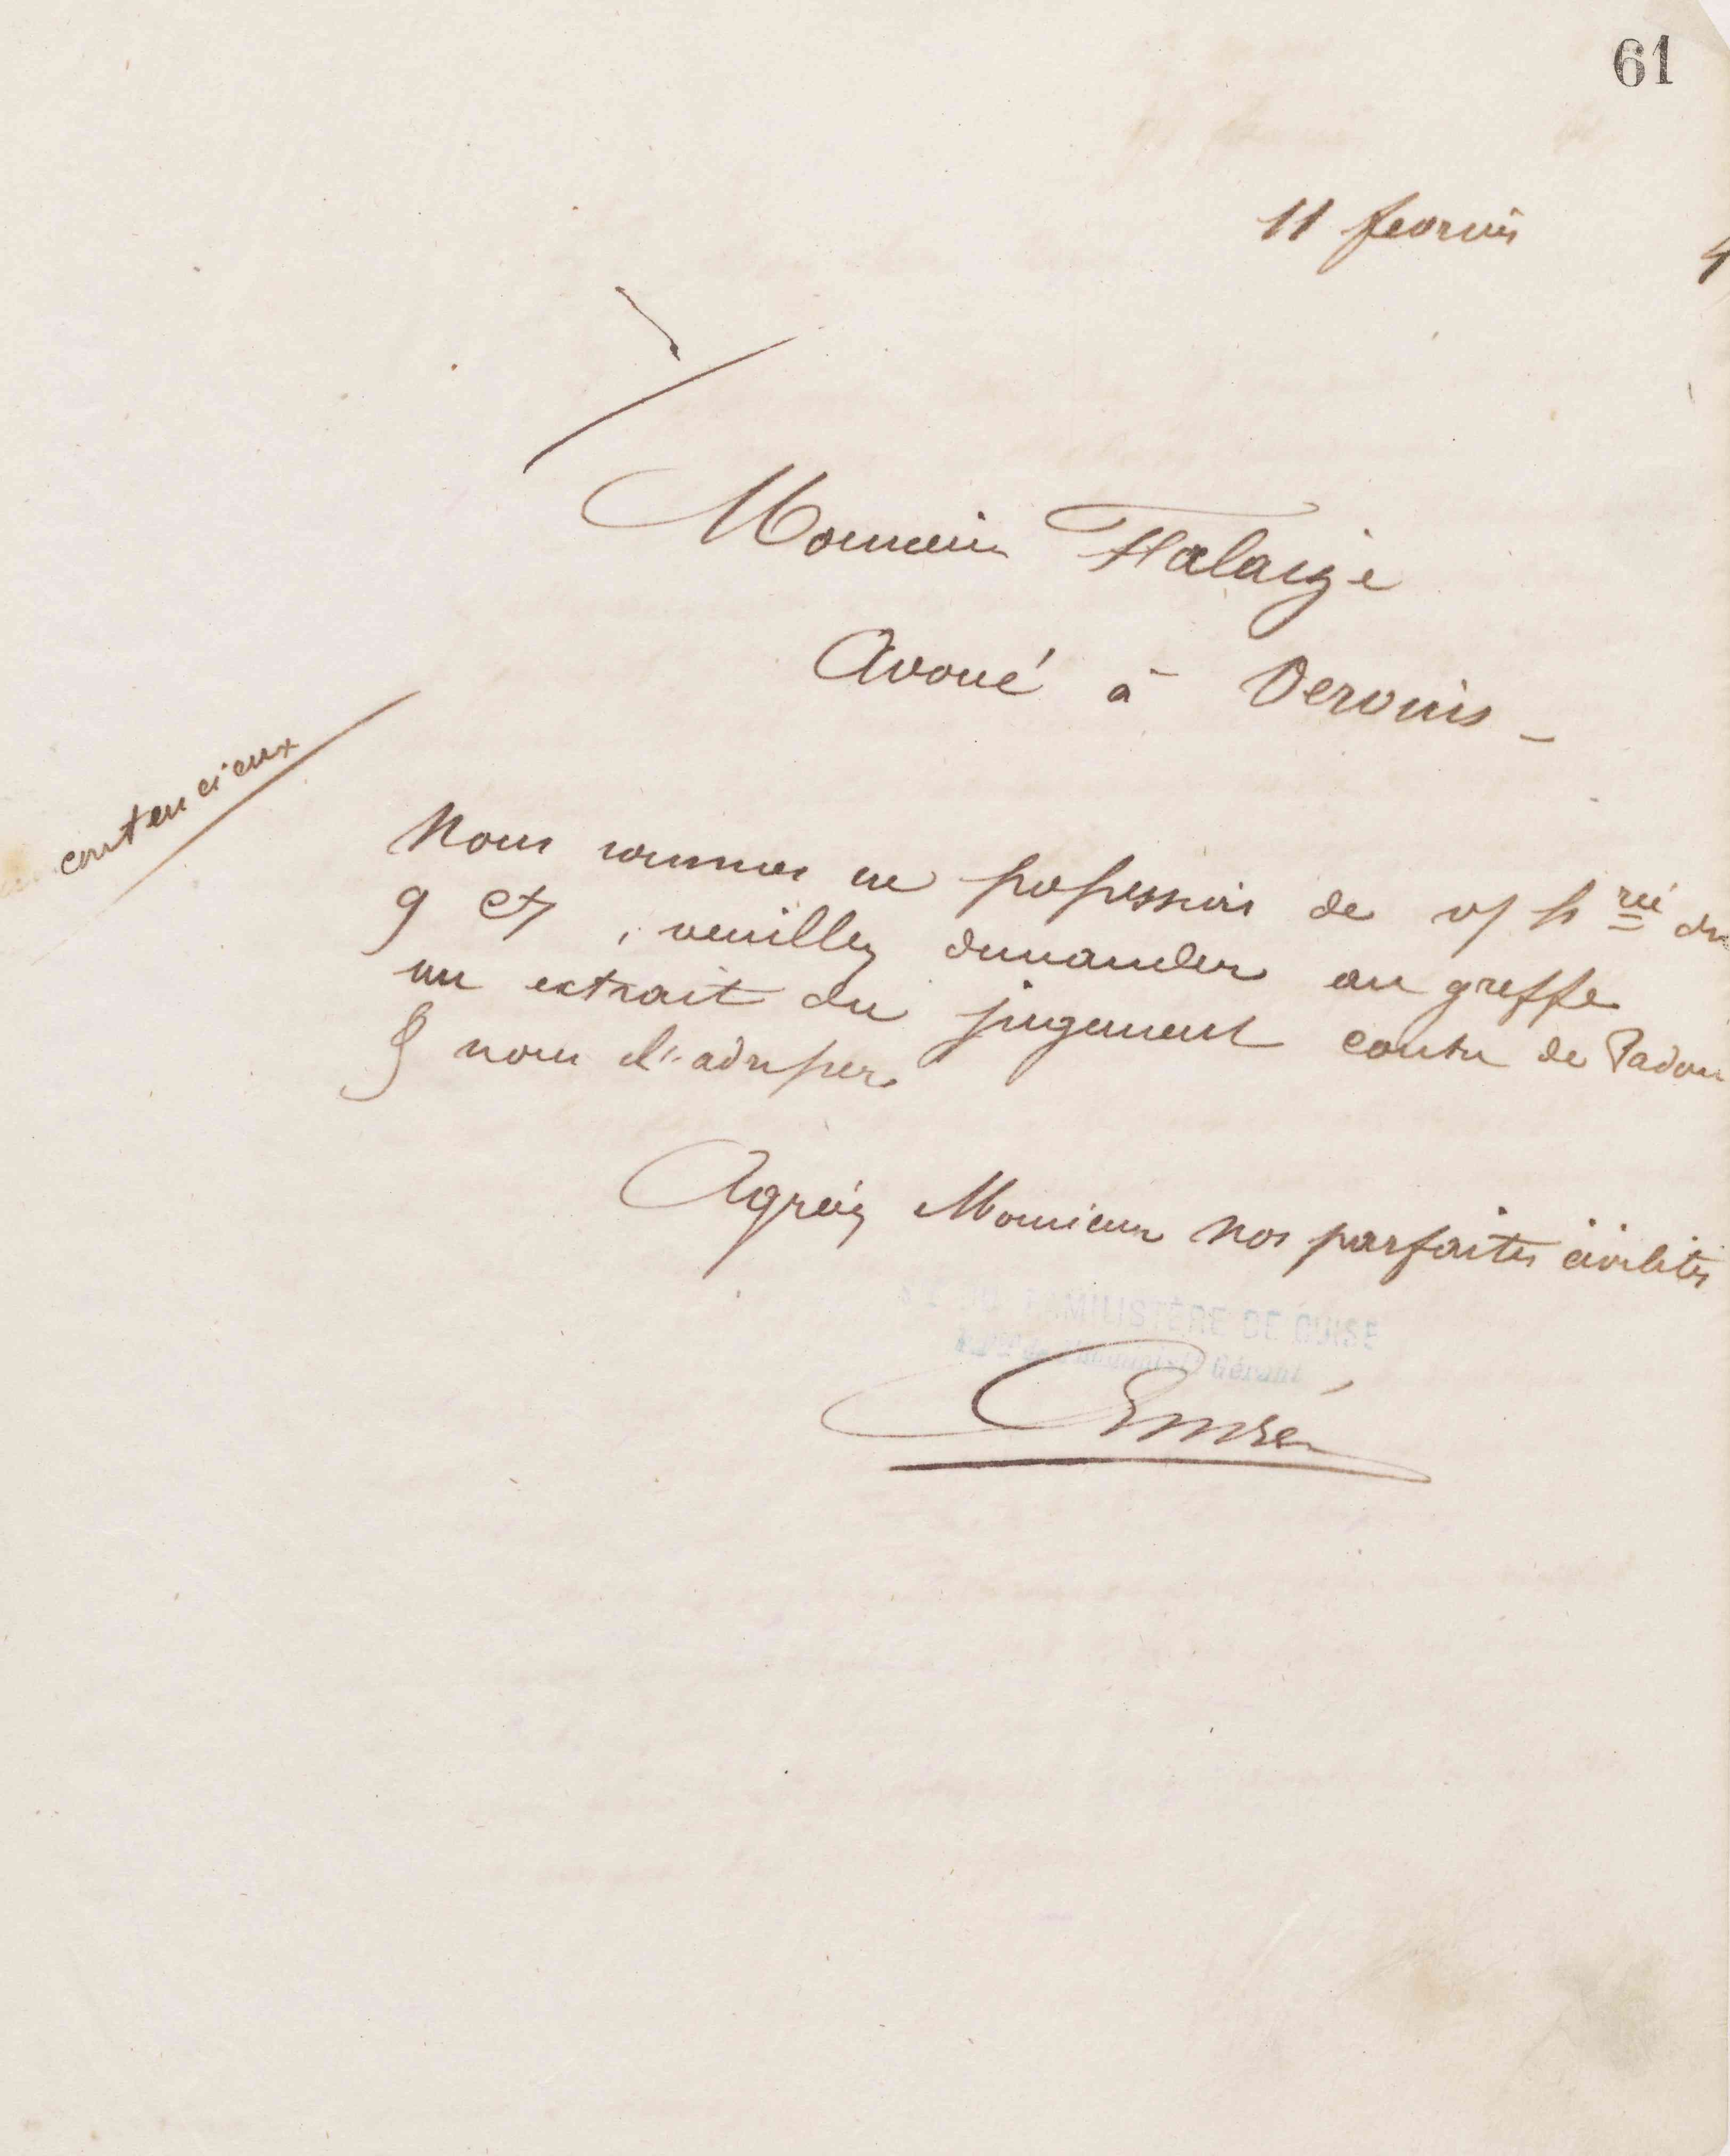 61
11 fevrier 4
Monsieur Halaize
Avoué à Vervins -
contencieux
Nous sommes en possession de v/ h rée du
9 et , veuillez demander au greffe
un extrait du jugement contre de Padou
& nous l'adresser.
Agréez Monsieur nos parfaites civilités
DU FAMILISTÈRE DE GUISE
Gérant